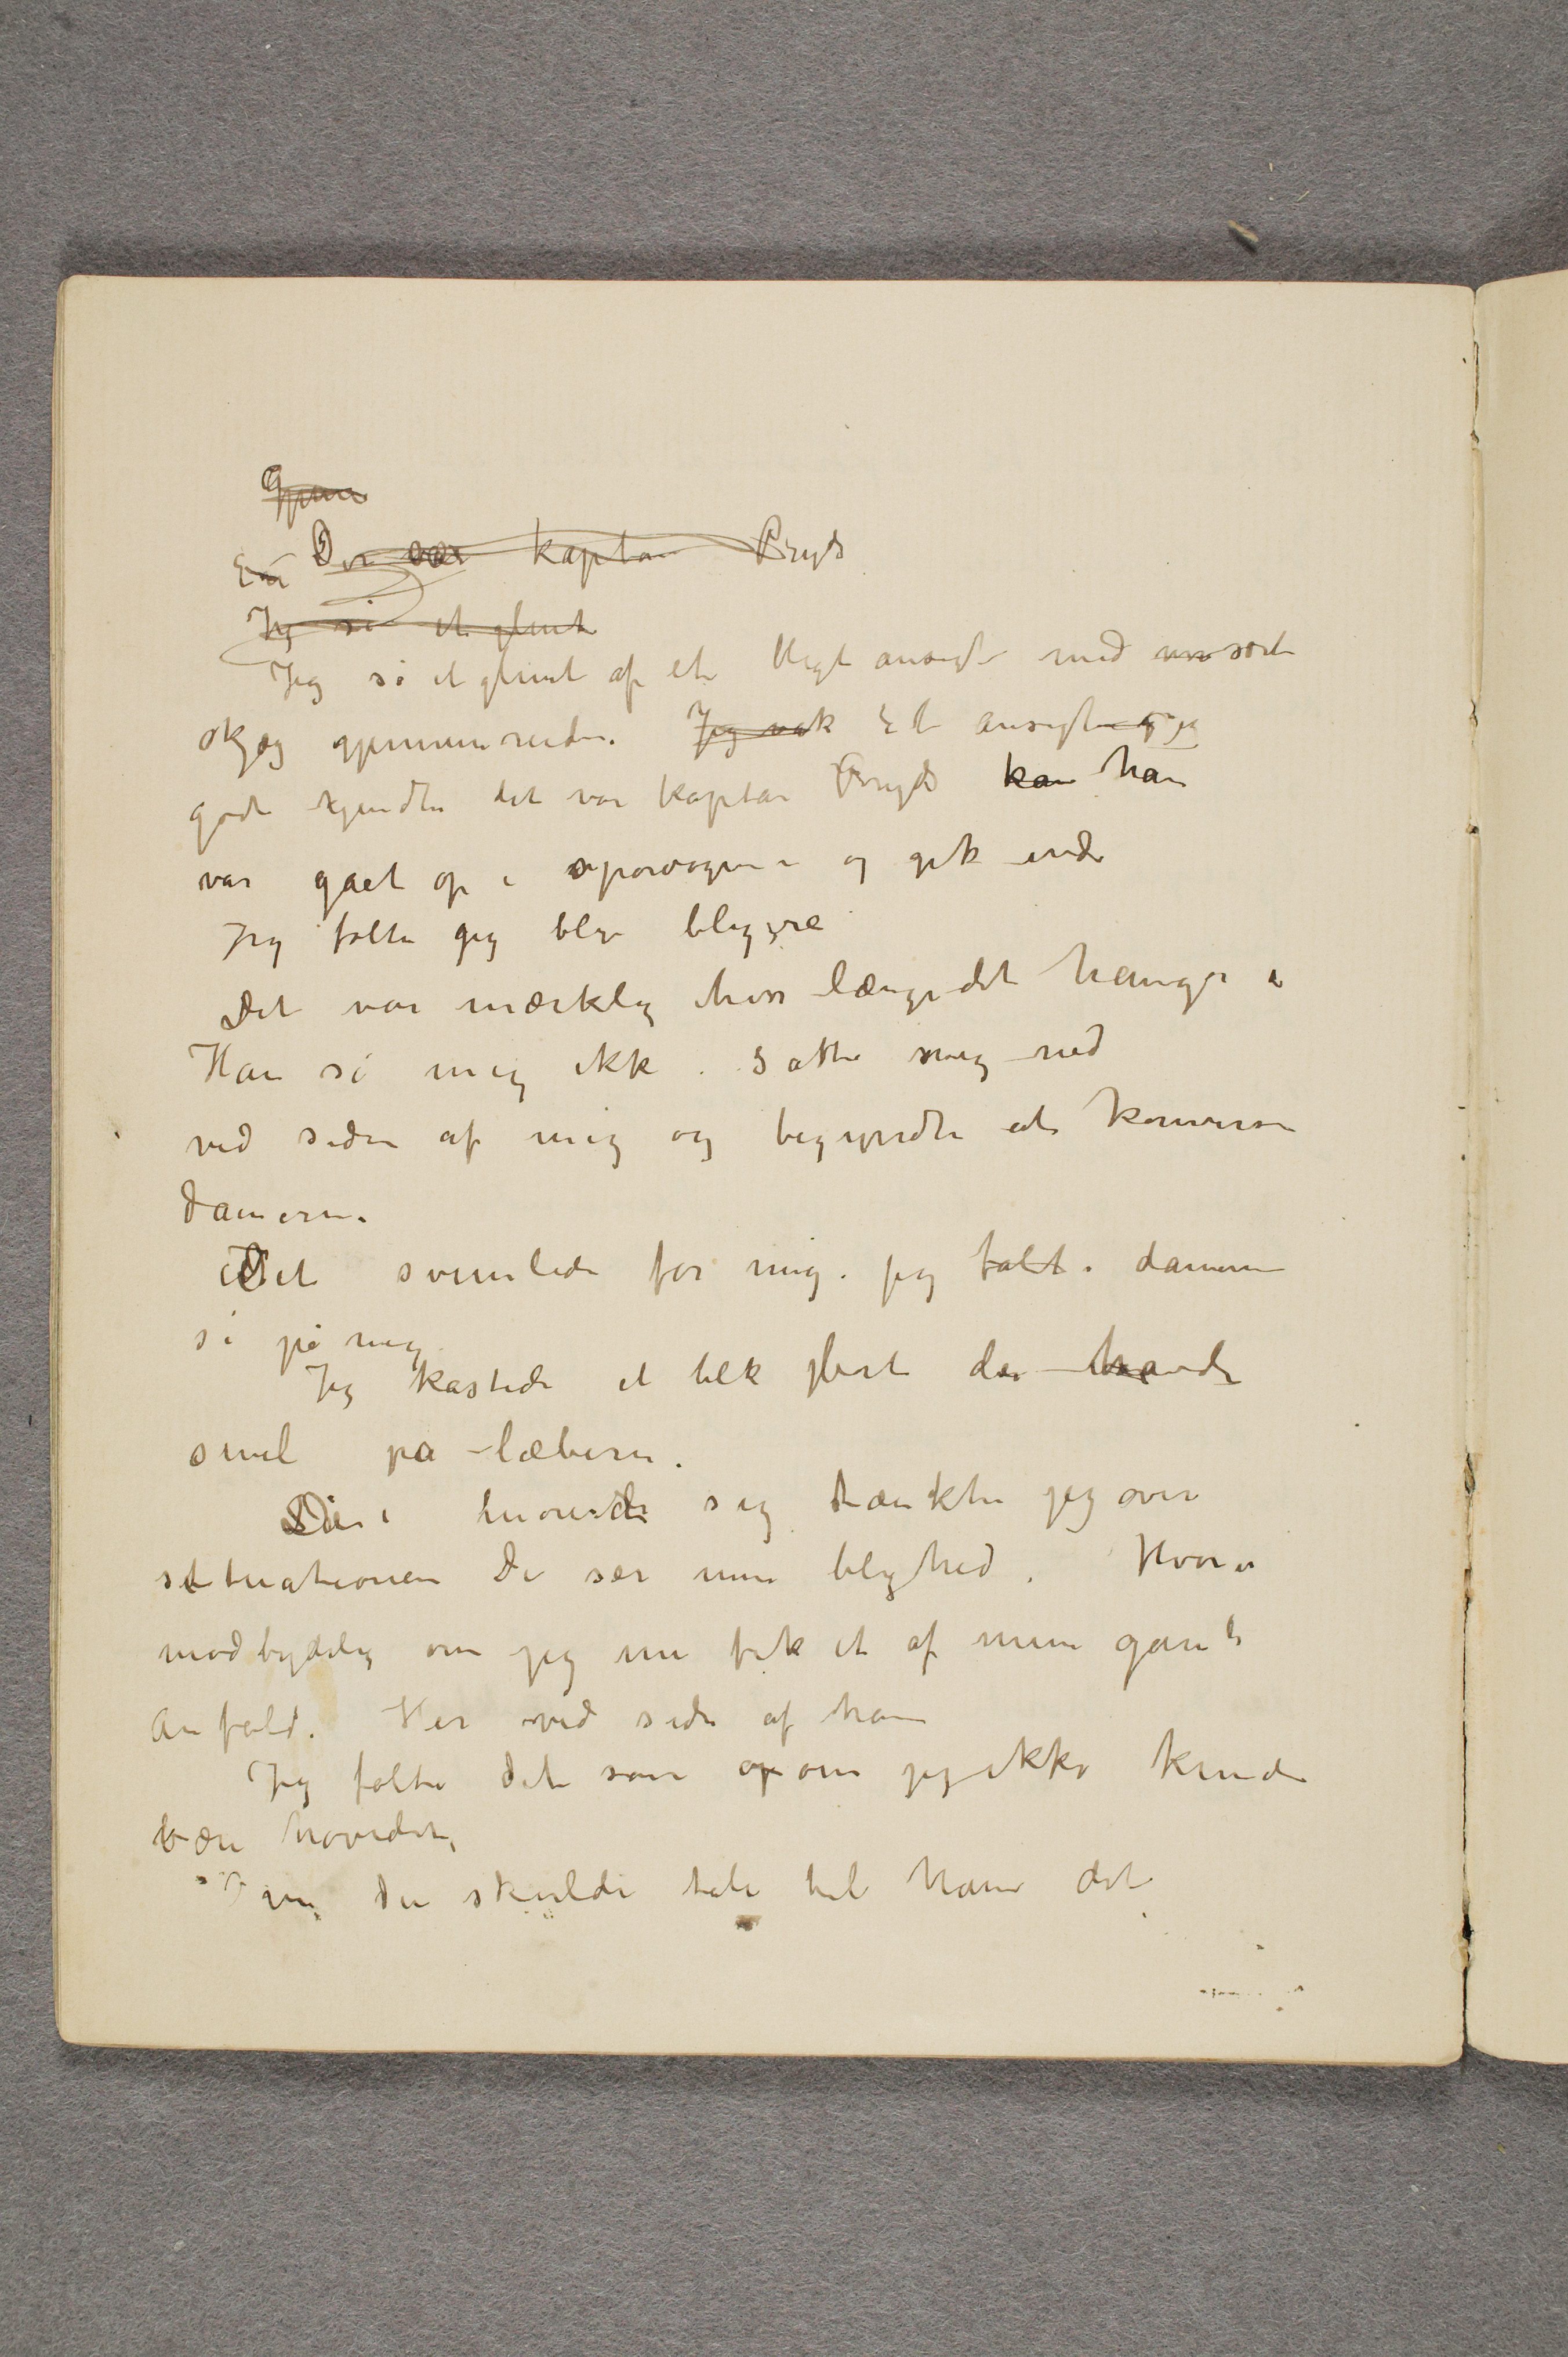 Gjenn
En Der var kaptan Bryds
Jeg så et glimt
Jeg så et glimt af et blegt ansigt med sort
skjæg gjennem ruden. Jeg vak Et ansigt jeg
godt kjendte det var kaptan Bryds kan han
var gaet op i sporvognen og gik ind
Jeg følte jeg blev blegere
Det var mærklig hvor længe det hænger i
Han så mig ikk. Satte sig ned
ved siden af mig og begyndte at konverse
damerne
Det svimlede for mig. Jeg følt. damerne
så på mig
Jeg kastede et blik flirt der havde
smil pa læberne.
De morede sig tænkte jeg over
situationen De ser min bleghed. Hvor
modbydelig om jeg nu fik et af mine gamle
anfald. Her ved siden af ham
Jeg følte det som op om jeg ikke kunde
bære hovedet,
nu du skulde tale til ham det